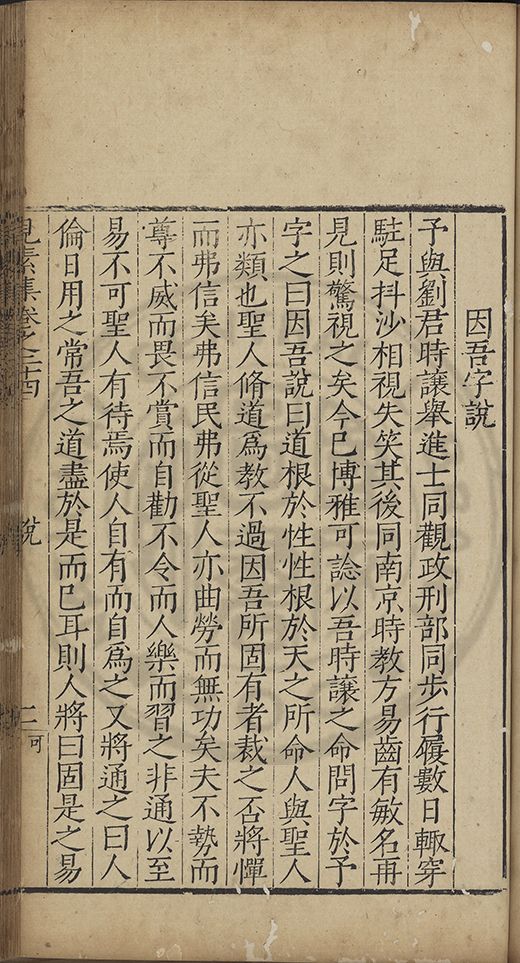 因吾字說
予與劉君時讓舉進士同觀政刑部同步行履數日輙穿
駐足抖沙相視失笑其後同南京時教方易齒有敏名再
見則驚視之矣今已博雅可諗以吾時讓之命問字於予
字之曰因吾說曰道根於性性根於天之所命人與聖人
亦類也聖人脩道爲教不過因吾所固有者裁之否將憚
而弗信矣弗信民弗從聖人亦曲勞而無功矣夫不勢而
尊不威而畏不賞而自勸不令而人樂而習之非通以至
易不可聖人有待焉使人自有而自爲之又將通之曰人
倫日用之常吾之道盡於是而已耳則人將曰固是之易
見素集卷之二十四
說
二
可